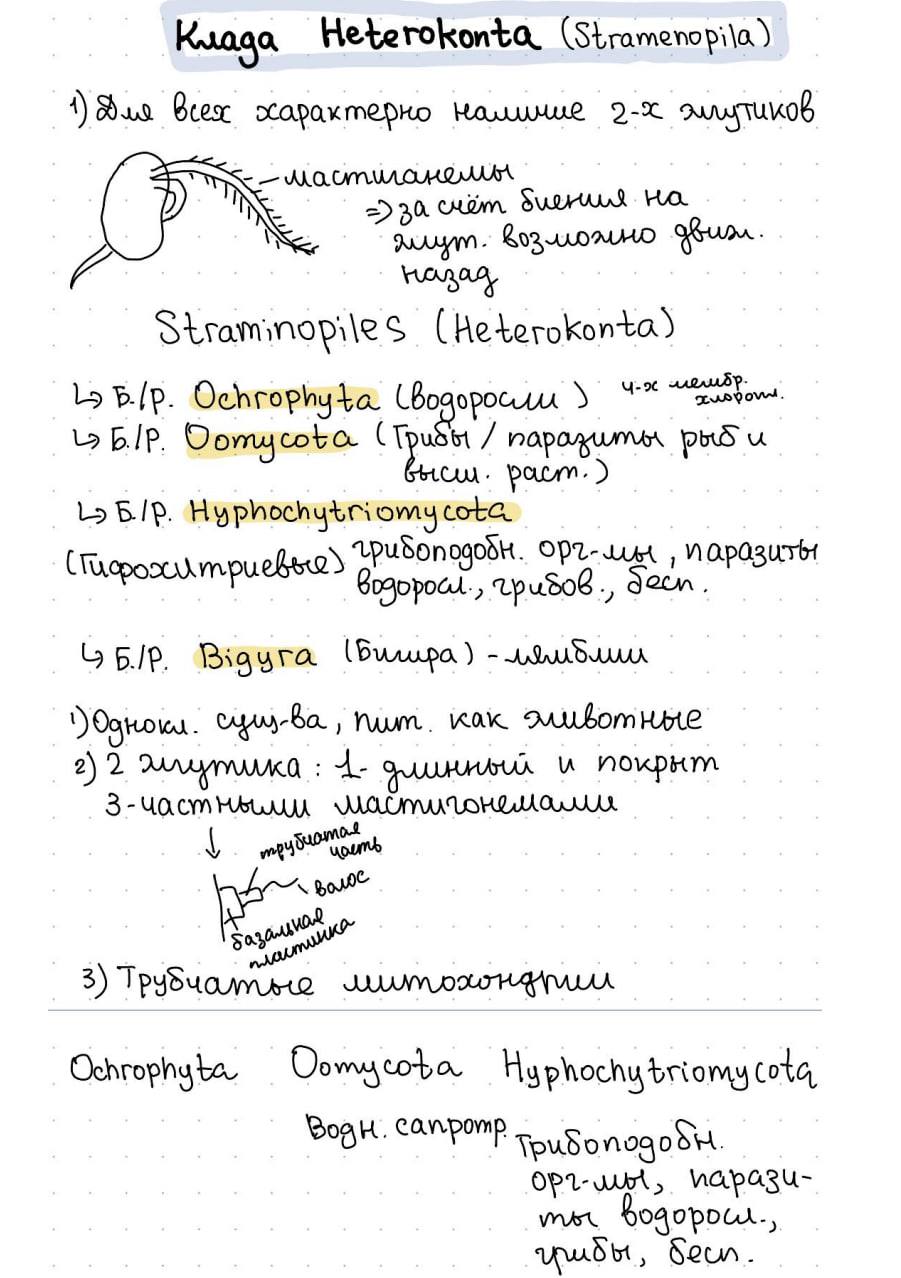 Клада Heterokonta (Stramenopila)
1) Для всех характерно наличие 2-х жгутиков
мастиганемы
=> за счёт биения на
жгут. возможно движ.
назад
Straminopiles (Heterokonta)
↳ Б./Р. Ochrophyta (водоросли) 4-х мембр.
хлороп.
↳ Б./Р. Oomycota (Грибы / паразиты рыб и
высш. раст.)
↳ Б./Р. Hyphochytriomycota
(Гифохитриевые) грибоподобн. орг-мы, паразиты
водоросл., грибов., бесп.
↳ Б./Р. Bigyra (Бигира) - лямблии
1) Однокл. сущ-ва, пит. как животные
2) 2 жгутика: 1- длинный и покрыт
3-частными мастигонемами
↓
трубчатая
часть
волос
базальная
пластинка
3) Трубчатые митохондрии
Ochrophyta Oomycota Hyphochytriomycota
Водн. сапротр. Грибоподобн.
орг-мы, парази-
ты водоросл.,
грибы, бесп.